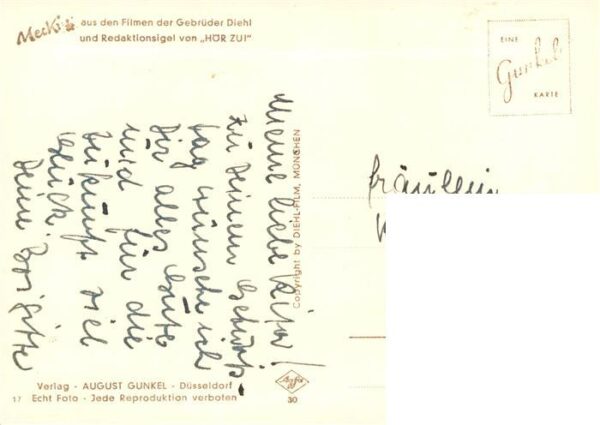 Mecki aus den Filmen der Gebrüder Diehl
und Redaktionsigel von „HÖR ZU!"
EINE
Gunkel
KARTE
Meine liebe
zu Deinem Geburts-
tag wünsche ich
Dir alles Gute
und für die
Zukunft viel
Glück.
Deine Brigitte
Copyright by DIEHL-FILM, MÜNCHEN
Fräulein
Verlag - AUGUST GUNKEL - Düsseldorf
17 Echt Foto - Jede Reproduktion verboten
Agfa
30